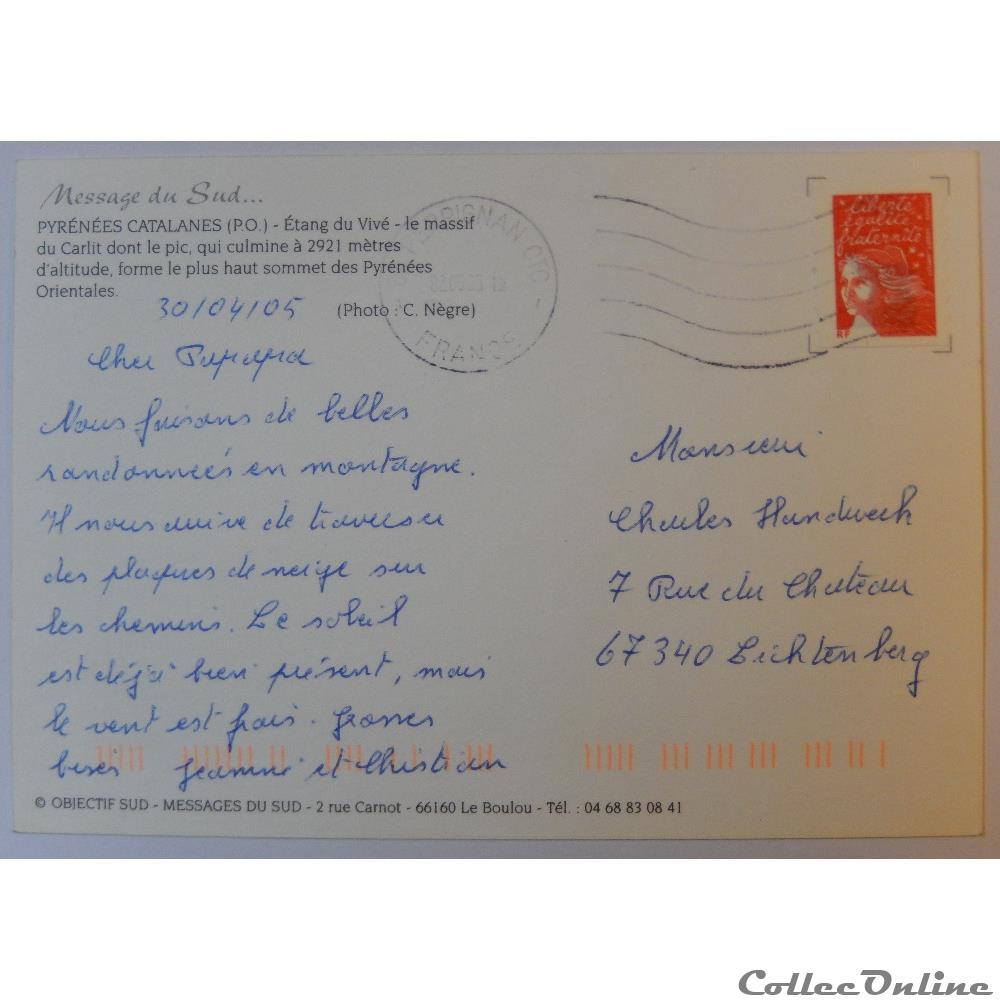 Message du Sud...
PYRÉNÉES CATALANES (P.O.) - Étang du Vivé - le massif
du Carlit dont le pic, qui culmine à 2921 mètres
d'altitude, forme le plus haut sommet des Pyrénées
Orientales.
30/04/05 (Photo : C. Nègre)
PERPIGNAN CTC
FRANCE
Liberté
égalité
fraternité
RF
Cher Papapa
Nous faisons de belles
randonnées en montagne.
Il nous arrive de traverser
des plaques de neige sur
les chemins. Le soleil
est déjà bien présent, mais
le vent est frais. Grosses
bises Jeannine et Christian
Monsieur
Charles Handwerk
7 Rue du Château
67340 Lichtenberg
© OBJECTIF SUD - MESSAGES DU SUD - 2 rue Carnot - 66160 Le Boulou - Tél. : 04 68 83 08 41
CollecOnline